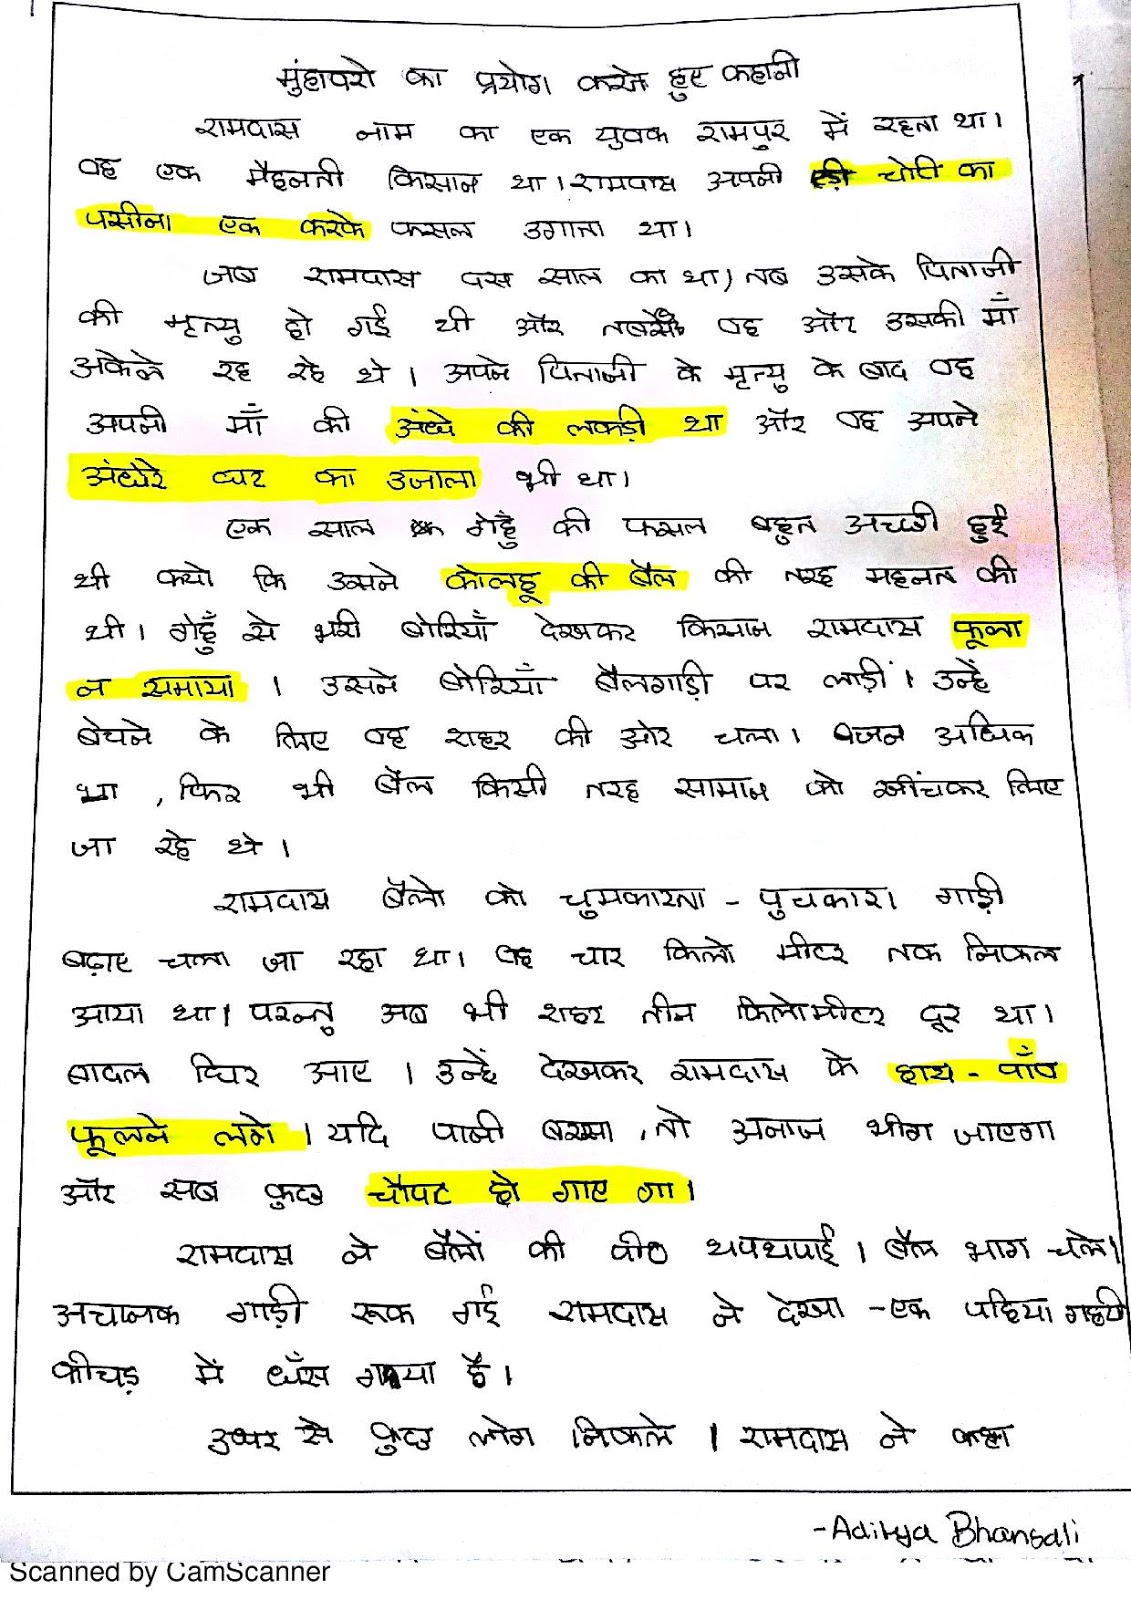 मुंहावरो का प्रयोग करते हुए कहानी
रामदास नाम का एक युवक रामपुर में रहता था।
वह एक मैहनती किसान था। रामदास अपनी एड़ी चोटी का
पसीना एक करके फसल उगाता था।
जब रामदास दस साल का था, तब उसके पिताजी
की मृत्यु हो गई थी और तबसे वह और उसकी माँ
अकेले रह रहे थे। अपने पिताजी के मृत्यु के बाद वह
अपनी माँ की अंधे की लकड़ी था और वह अपने
अंधेरे घर का उजाला भी था।
एक साल गेहुँ की फसल बहुत अच्छी हुई
थी क्यो कि उसने कोलहू की बैल की तरह महनत की
थी। गेहुँ से भरी बोरियाँ देखकर किसान रामदास फूला
न समाया। उसने बोरियाँ बैलगाड़ी पर लादीं। उन्हें
बेचने के लिए वह शहर की ओर चला। वजन अधिक
था, फिर भी बैल किसी तरह सामान को खींचकर लिए
जा रहे थे।
रामदास बैलो को चुमकारता - पुचकारा गाड़ी
बढ़ाए चला जा रहा था। वह चार किलो मीटर तक निकल
आया था। परन्तु अब भी शहर तीन किलोमीटर दूर था।
बादल घिर आए। उन्हें देखकर रामदास के हाथ - पाँव
फूलने लगे। यदि पानी बरसा, तो अनाज भीग जाएगा
और सब कुछ चौपट हो गाए गा।
रामदास ने बैलों की पीठ थपथपाई। बैल भाग चले।
अचानक गाड़ी रूक गई रामदास ने देखा - एक पहिया गहरी
कीचड़ में धँस गया है।
उधर से कुछ लोग निकले। रामदास ने कहा
-Aditya Bhansali
Scanned by CamScanner